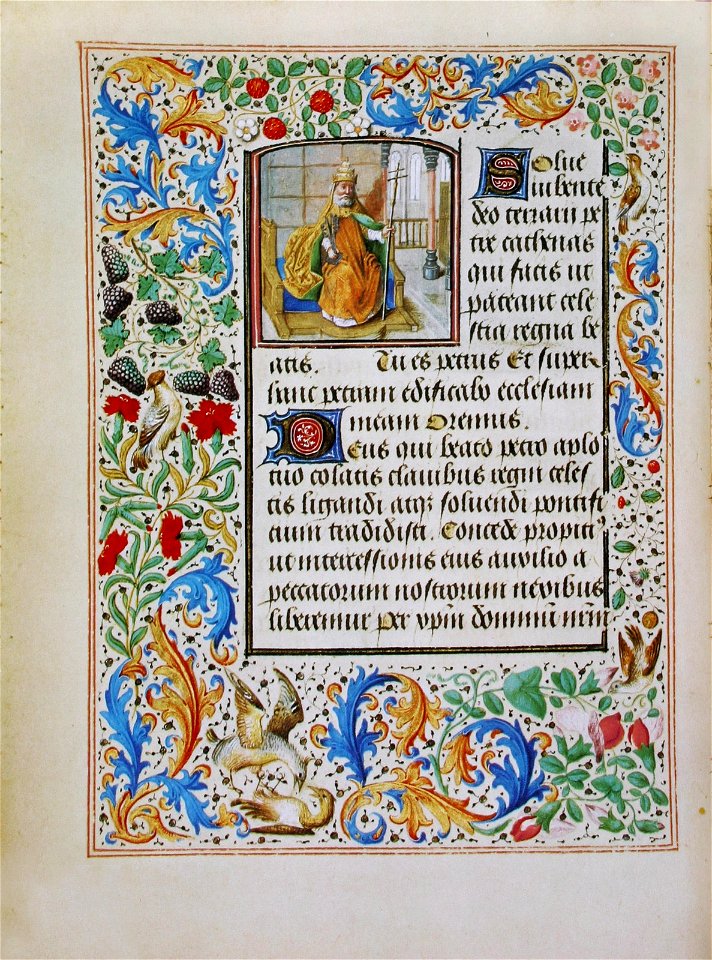 Solue
iubente
deo terram pe
tre cathenas
qui facis ut
pateant cele
stia regna be
atis. Tu es petrus Et super
hanc petram edificabo ecclesiam
meam Oremus.
Deus qui beato petro aplo
tuo colatis clauibus regni celes
tis ligandi atqz soluendi pontifi
cium tradidisti. Concede propiciꝰ
ut intercessionis eius auxilio a
peccatorum nostrorum nexibus
liberemur per xpm dominum nrm